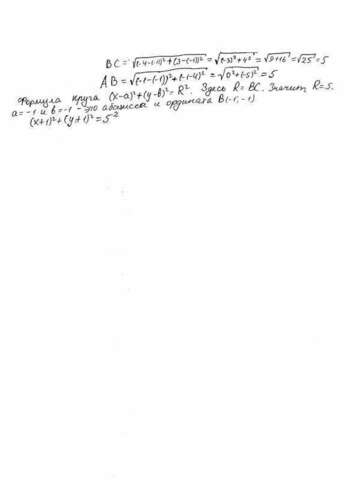 BC = √(-4-(-1))² + (3-(-1))² = √(-3)² + 4² = √9+16 = √25 = 5
AB = √(-1-(-1))² + (-1-4)² = √0² + (-5)² = 5
Формула круга (x-a)² + (y-b)² = R². Здесь R = BC. Значит R = 5.
a = -1 и b = -1 - это абсцисса и ордината B(-1; -1)
(x+1)² + (y+1)² = 5²